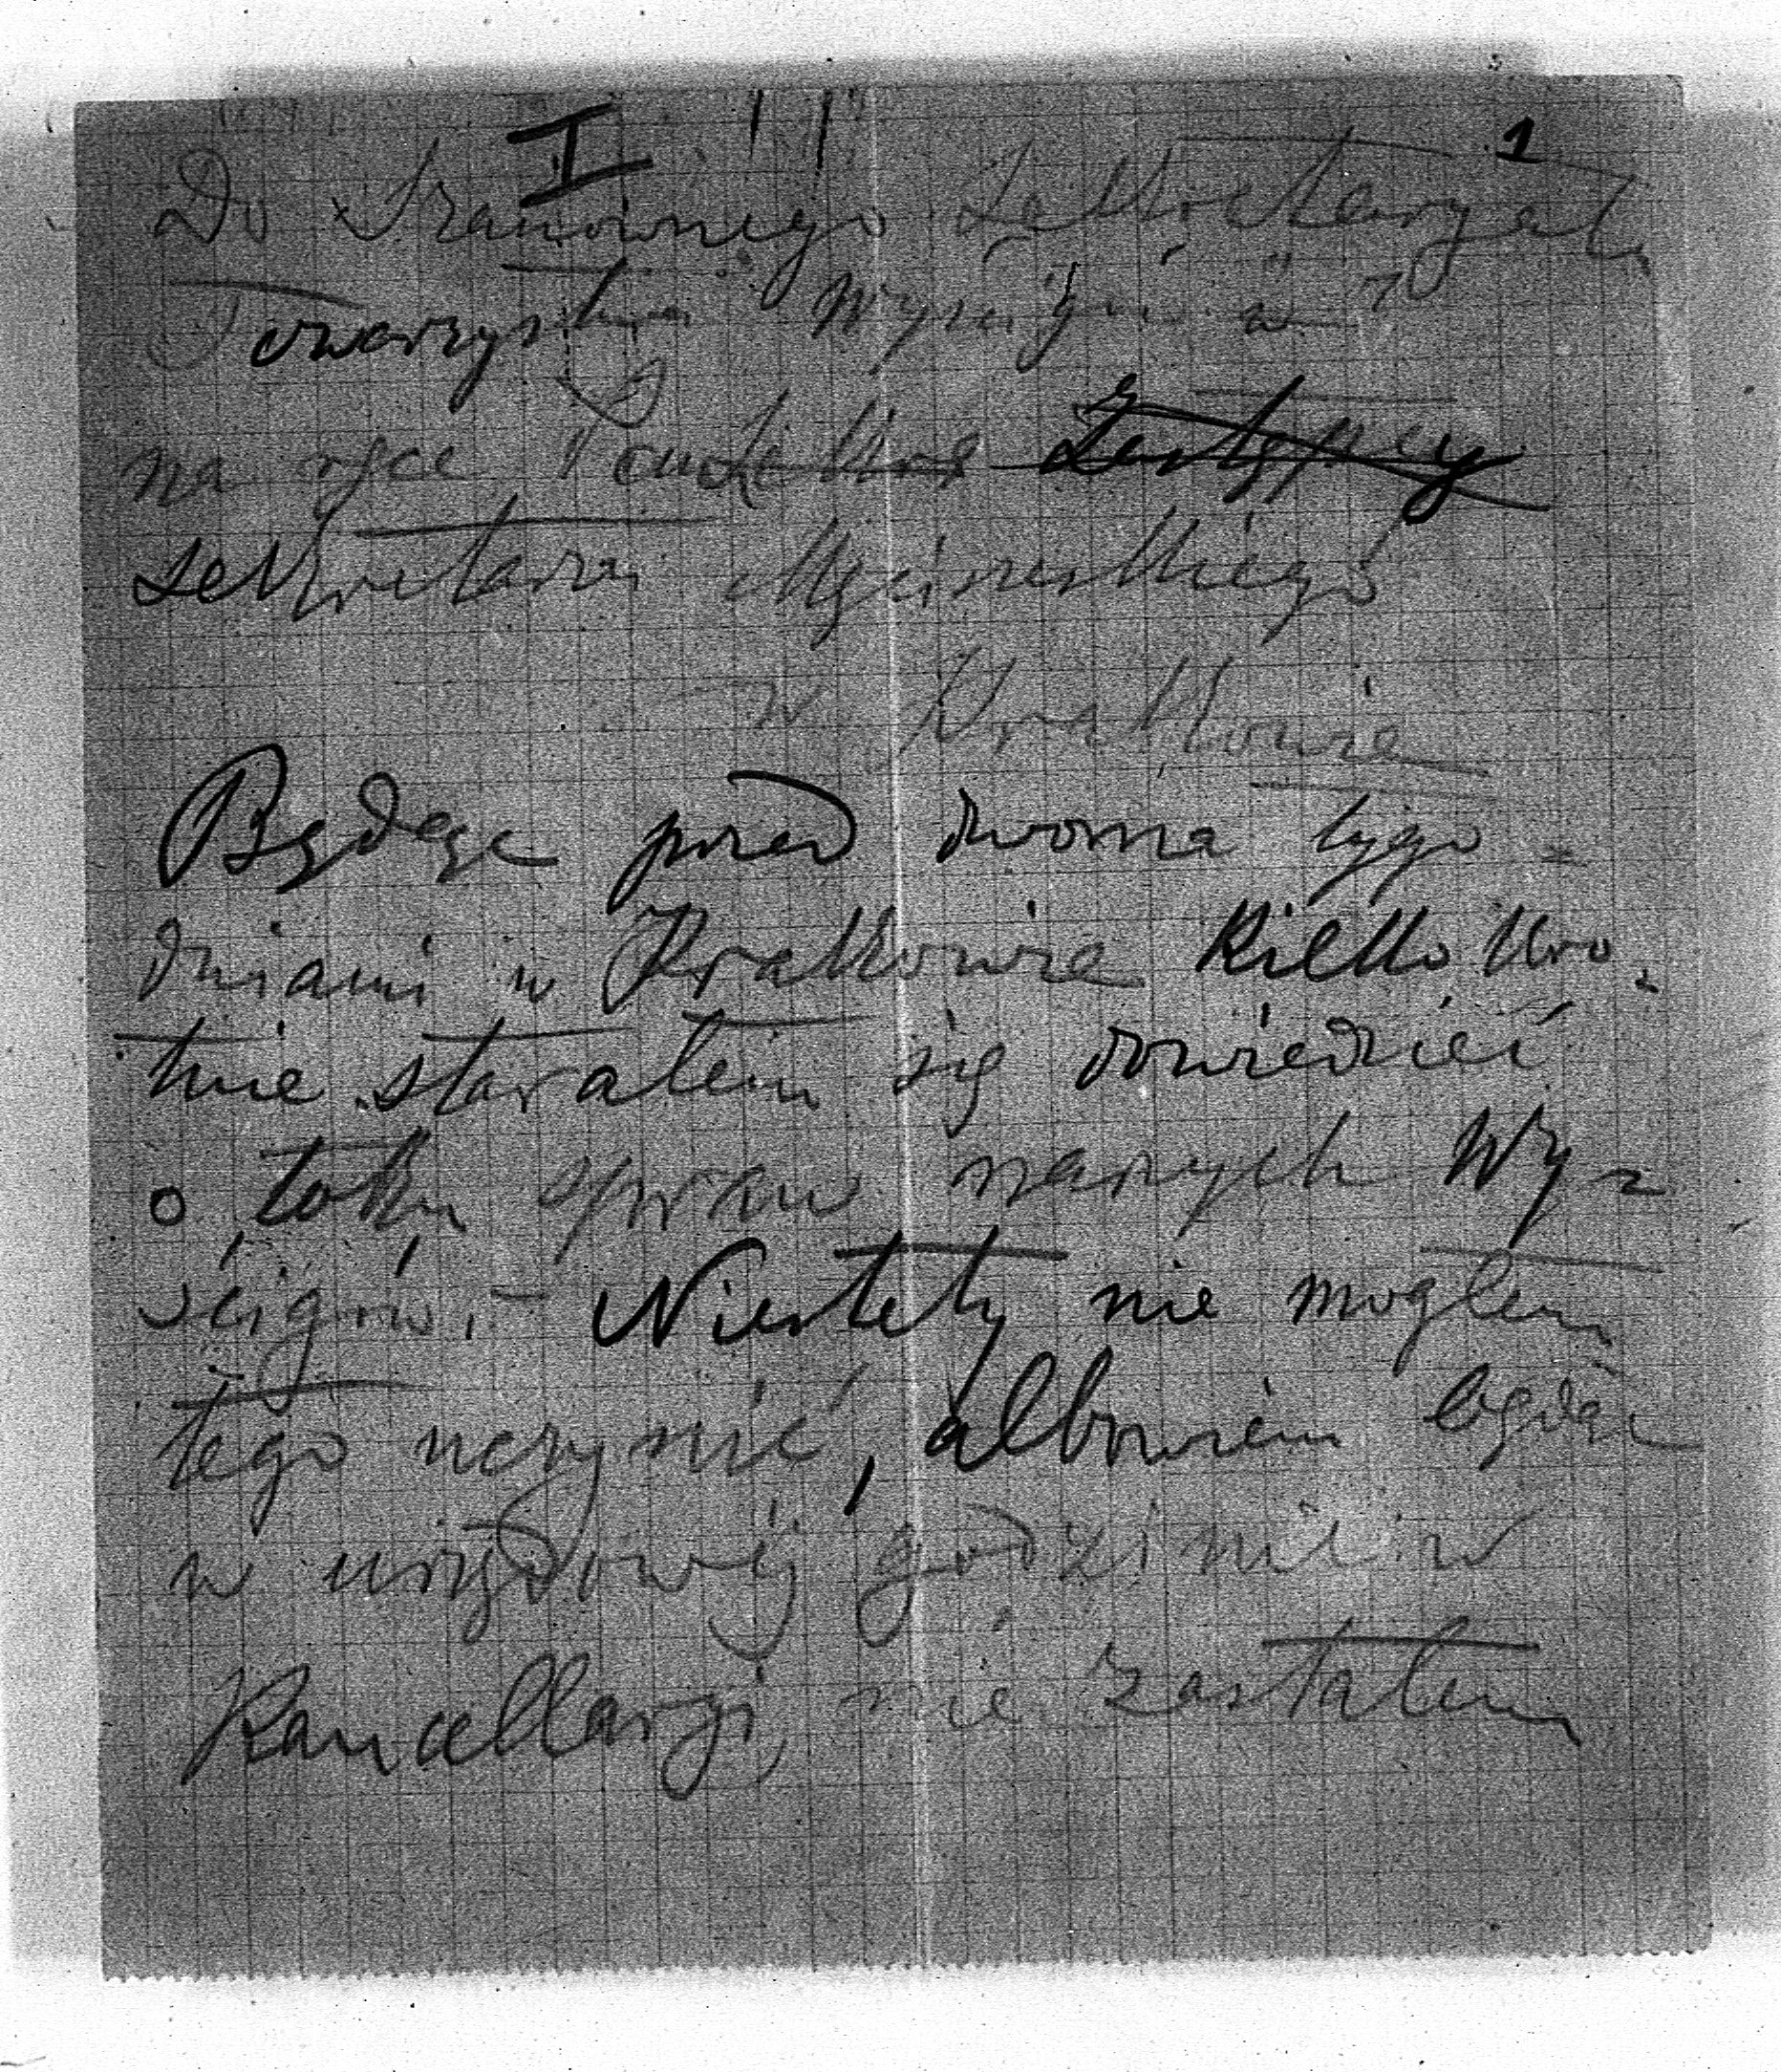 I 1
Do Szanownego Sekretaryatu
Towarzystwa Wyścigów w
na ręce Pana Zastępcy
sekretarza Mycielskiego
w Krakowie
Będąc przed dwoma tygo-
dniami w Krakowie kilkakro-
tnie starałem się dowiedzieć
o toku spraw naszych Wy-
ścigów. - Niestety nie mogłem
tego uczynić, albowiem będąc
w urzędowej godzinie w
Kancellaryi, nie zastałem